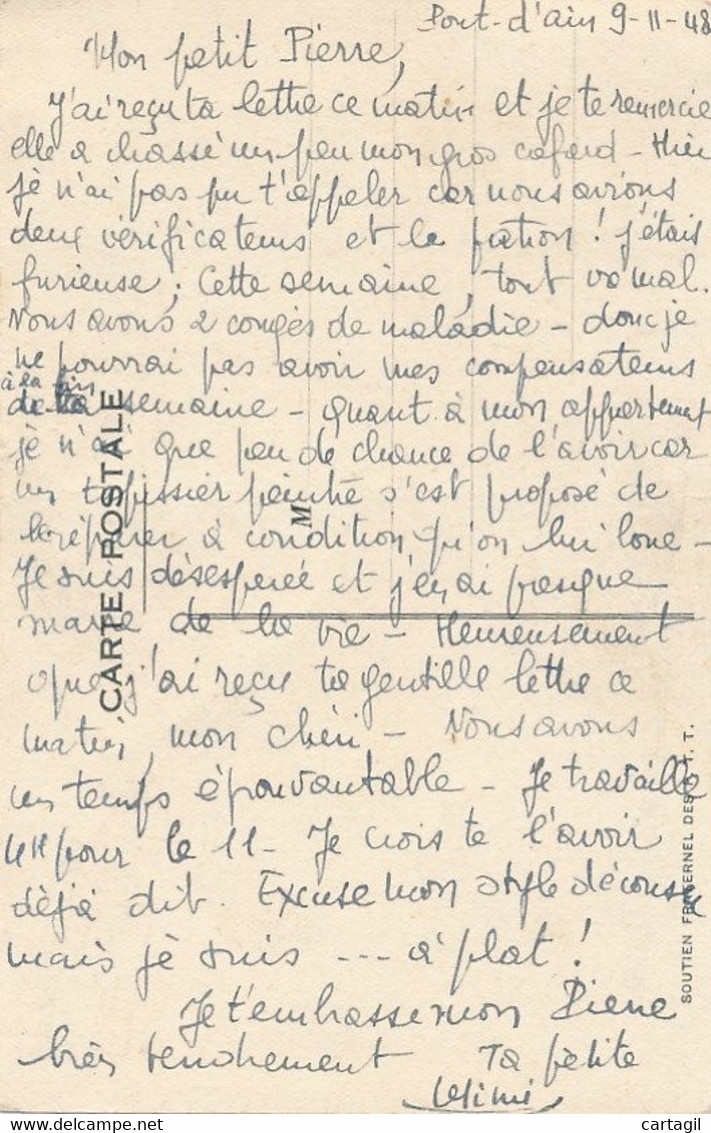 Pont-d'ain 9-11-48
Mon petit Pierre,
J'ai reçu ta lettre ce matin et je te remercie
elle a chassé un peu mon gros cafard - Hier
je n'ai pas pu t'appeler car nous avions
deux vérificateurs et le patron ! j'étais
furieuse ; Cette semaine, tout va mal.
Nous avons 2 congés de maladie - donc je
ne pourrai pas avoir mes compensateurs
à la fin
de la semaine - Quant à mon appartement
je n'ai que peu de chance de l'avoir car
un tapissier peintre s'est proposé de
le réparer à condition qu'on lui loue -
Je suis désespérée et j'en ai presque
marre de la vie - Heureusement
que j'ai reçu ta gentille lettre ce
matin, mon chéri - Nous avons
un temps épouvantable - Je travaille
4H pour le 11 - Je crois te l'avoir
déjà dit. Excuse mon style décousu
mais je suis --- à plat !
Je t'embrasse mon Pierre
très tendrement Ta petite
Mimi
CARTE POSTALE
M
SOUTIEN FRATERNEL DES P. T. T.
cartagil